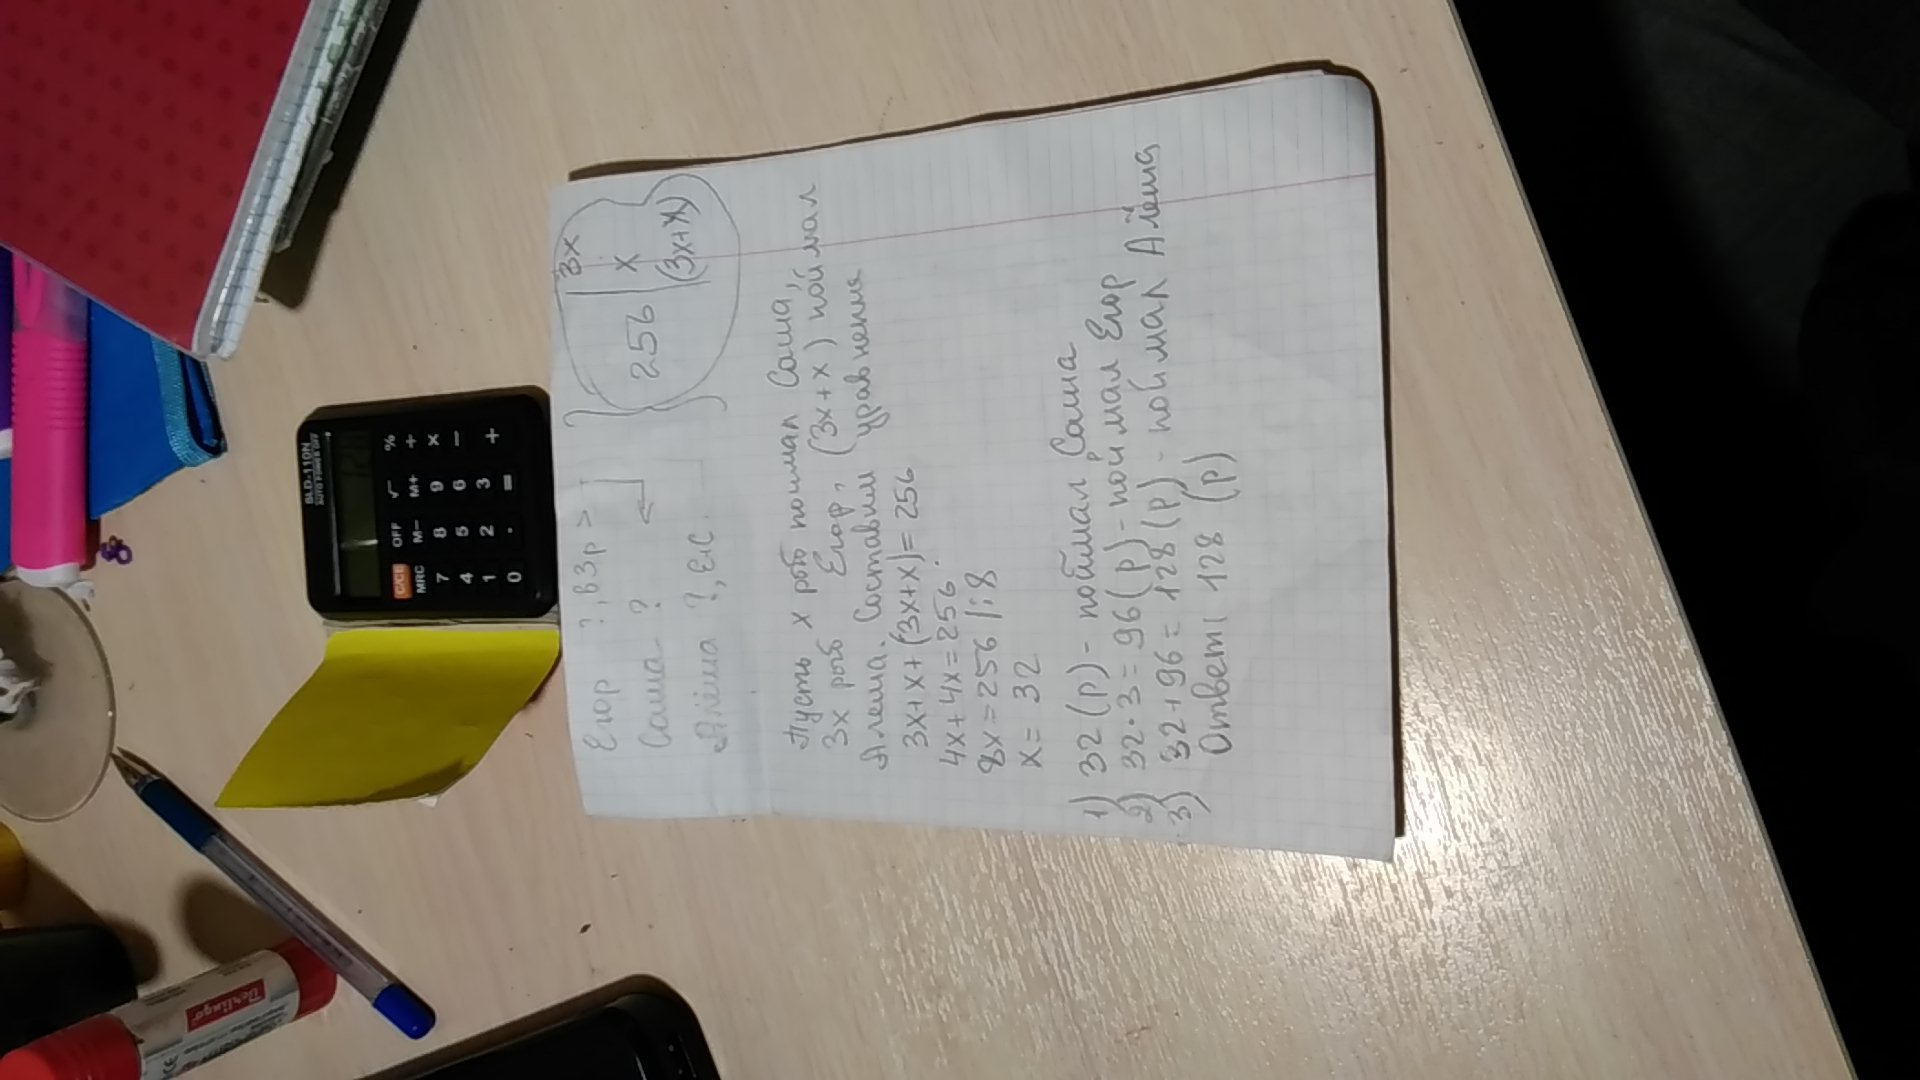 Егор ?, в 3 р >
Саша ?
Алёша ?, Е и С
256
3x
x
(3x+x)
Пусть x рыб поймал Саша,
3x рыб Егор, (3x+x) поймал
Алеша. Составим уравнение
3x+x+(3x+x)=256
4x+4x=256
8x=256 |:8
x=32
1) 32 (р) - поймал Саша
2) 32·3=96(р) - поймал Егор
3) 32+96=128(р) - поймал Алёша
Ответ: 128 (р)
SLD-110N
AUTO POWER OFF
OFF √ %
MRC M− M+ ÷
7 8 9 ×
4 5 6 −
1 2 3 +
0 . =
Berlingo